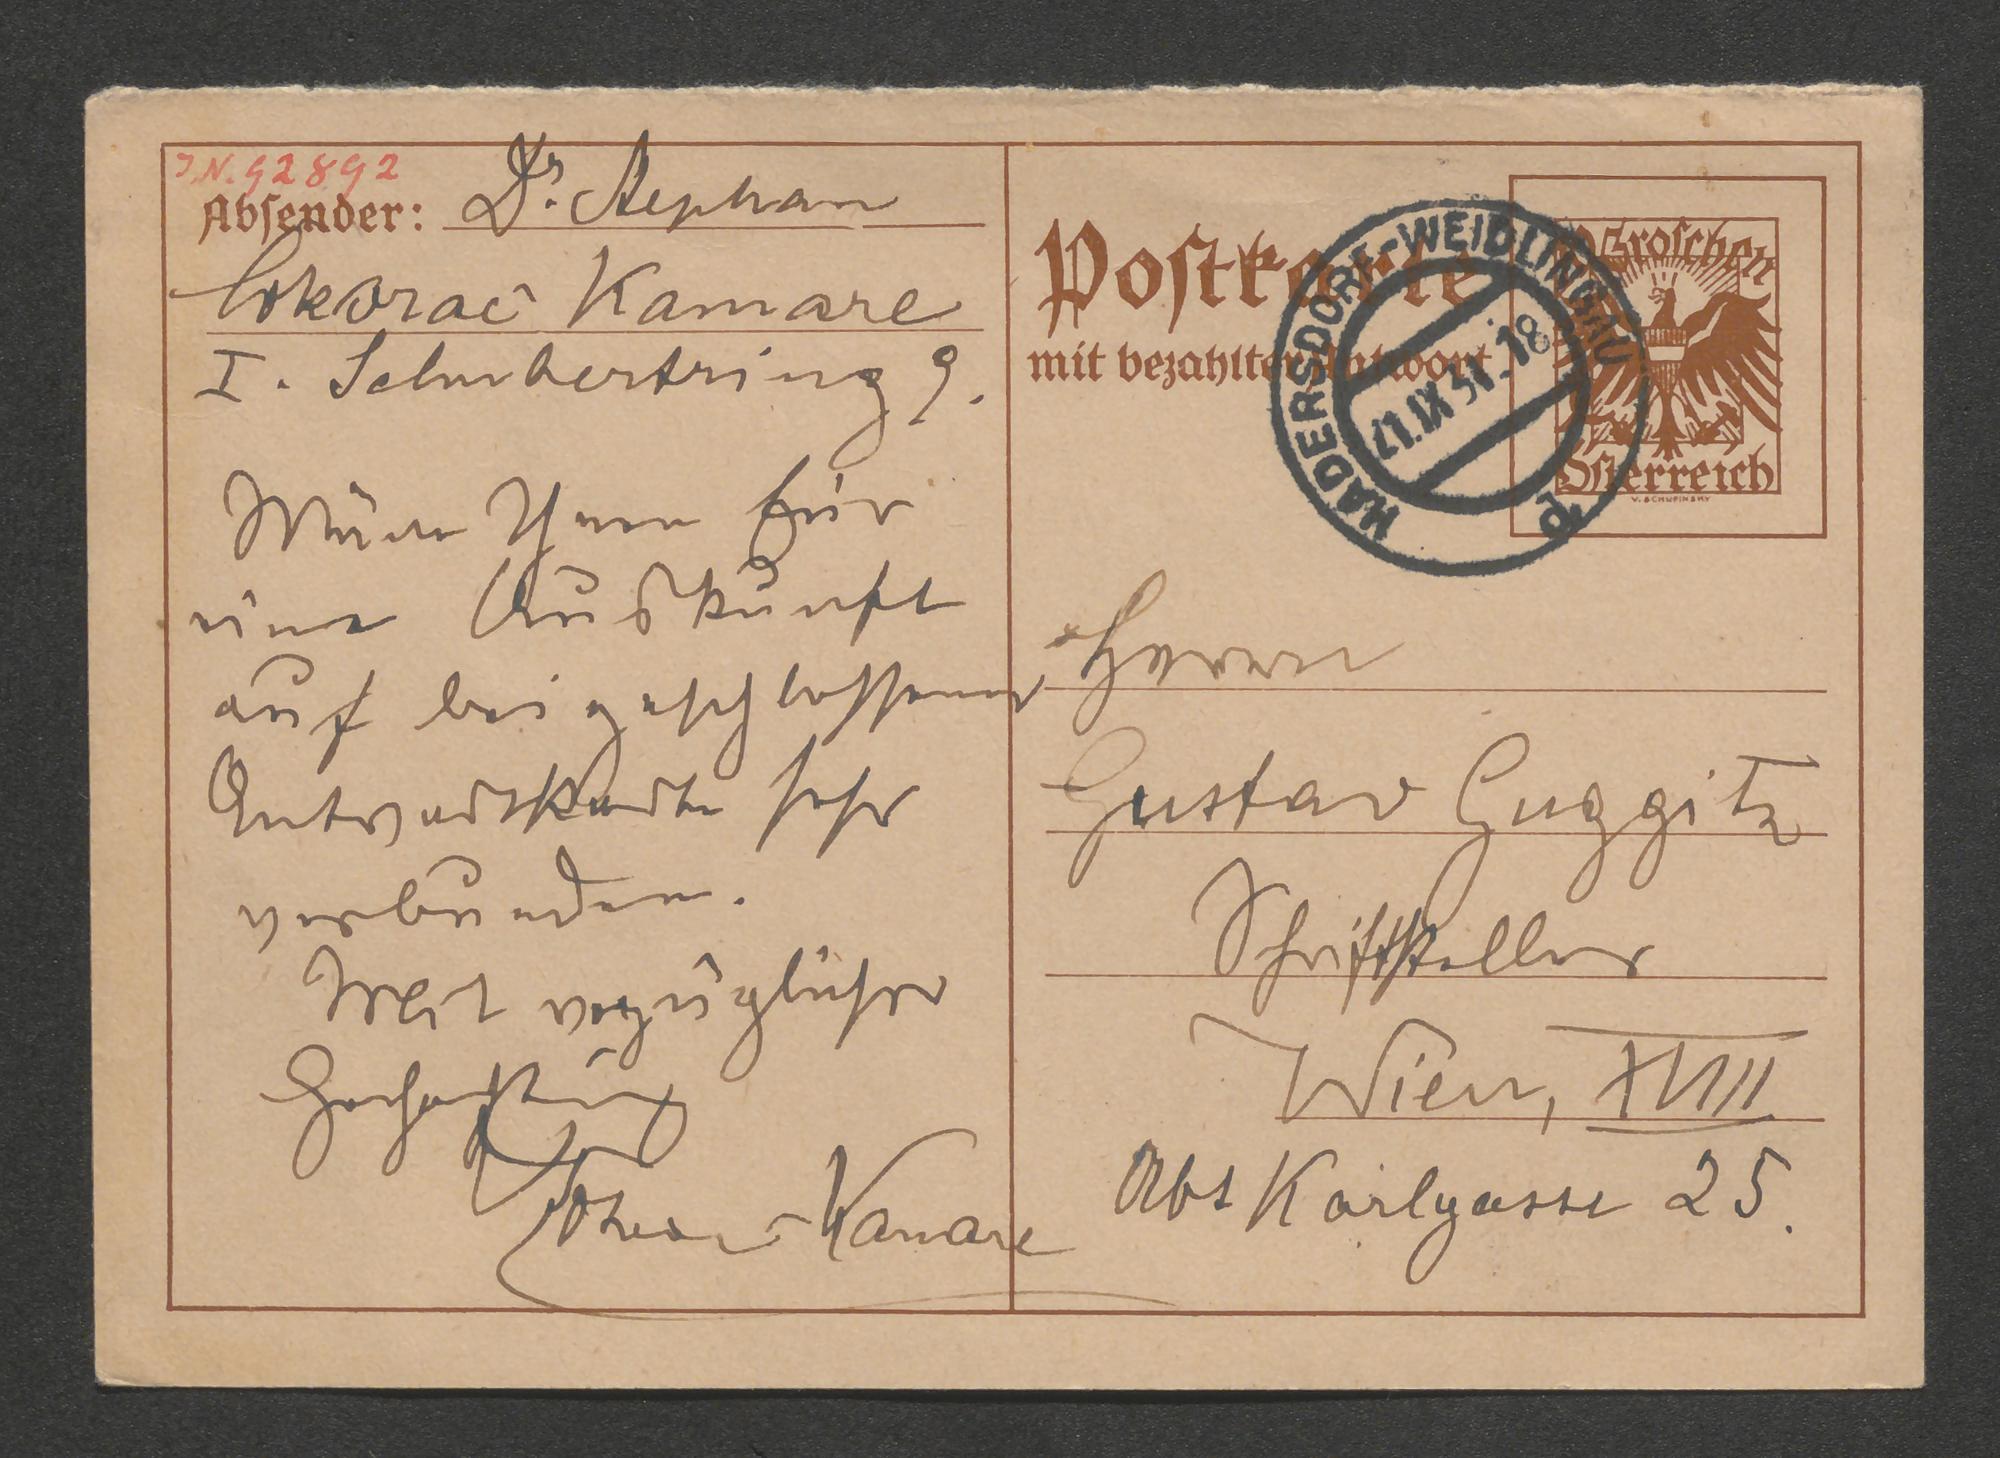 I.N. 92892
Absender: Dr. Stephan
Čokorac Kamare
I. Schubertring 9.
Wäre Ihnen für
eine Auskunft
auf beigeschlossener
Antwortkarte sehr
verbunden.
Mit vorzüglicher
Hochachtung
Kamare
Postkarte
mit bezahlter Antwort
HADERSDORF-WEIDLINGAU
21.IX 31 - 18
Groschen
Österreich
V. SCHUFINSKY
Herrn
Gustav Guggitz
Schriftsteller
Wien, XVIII
Abt Karlgasse 25.